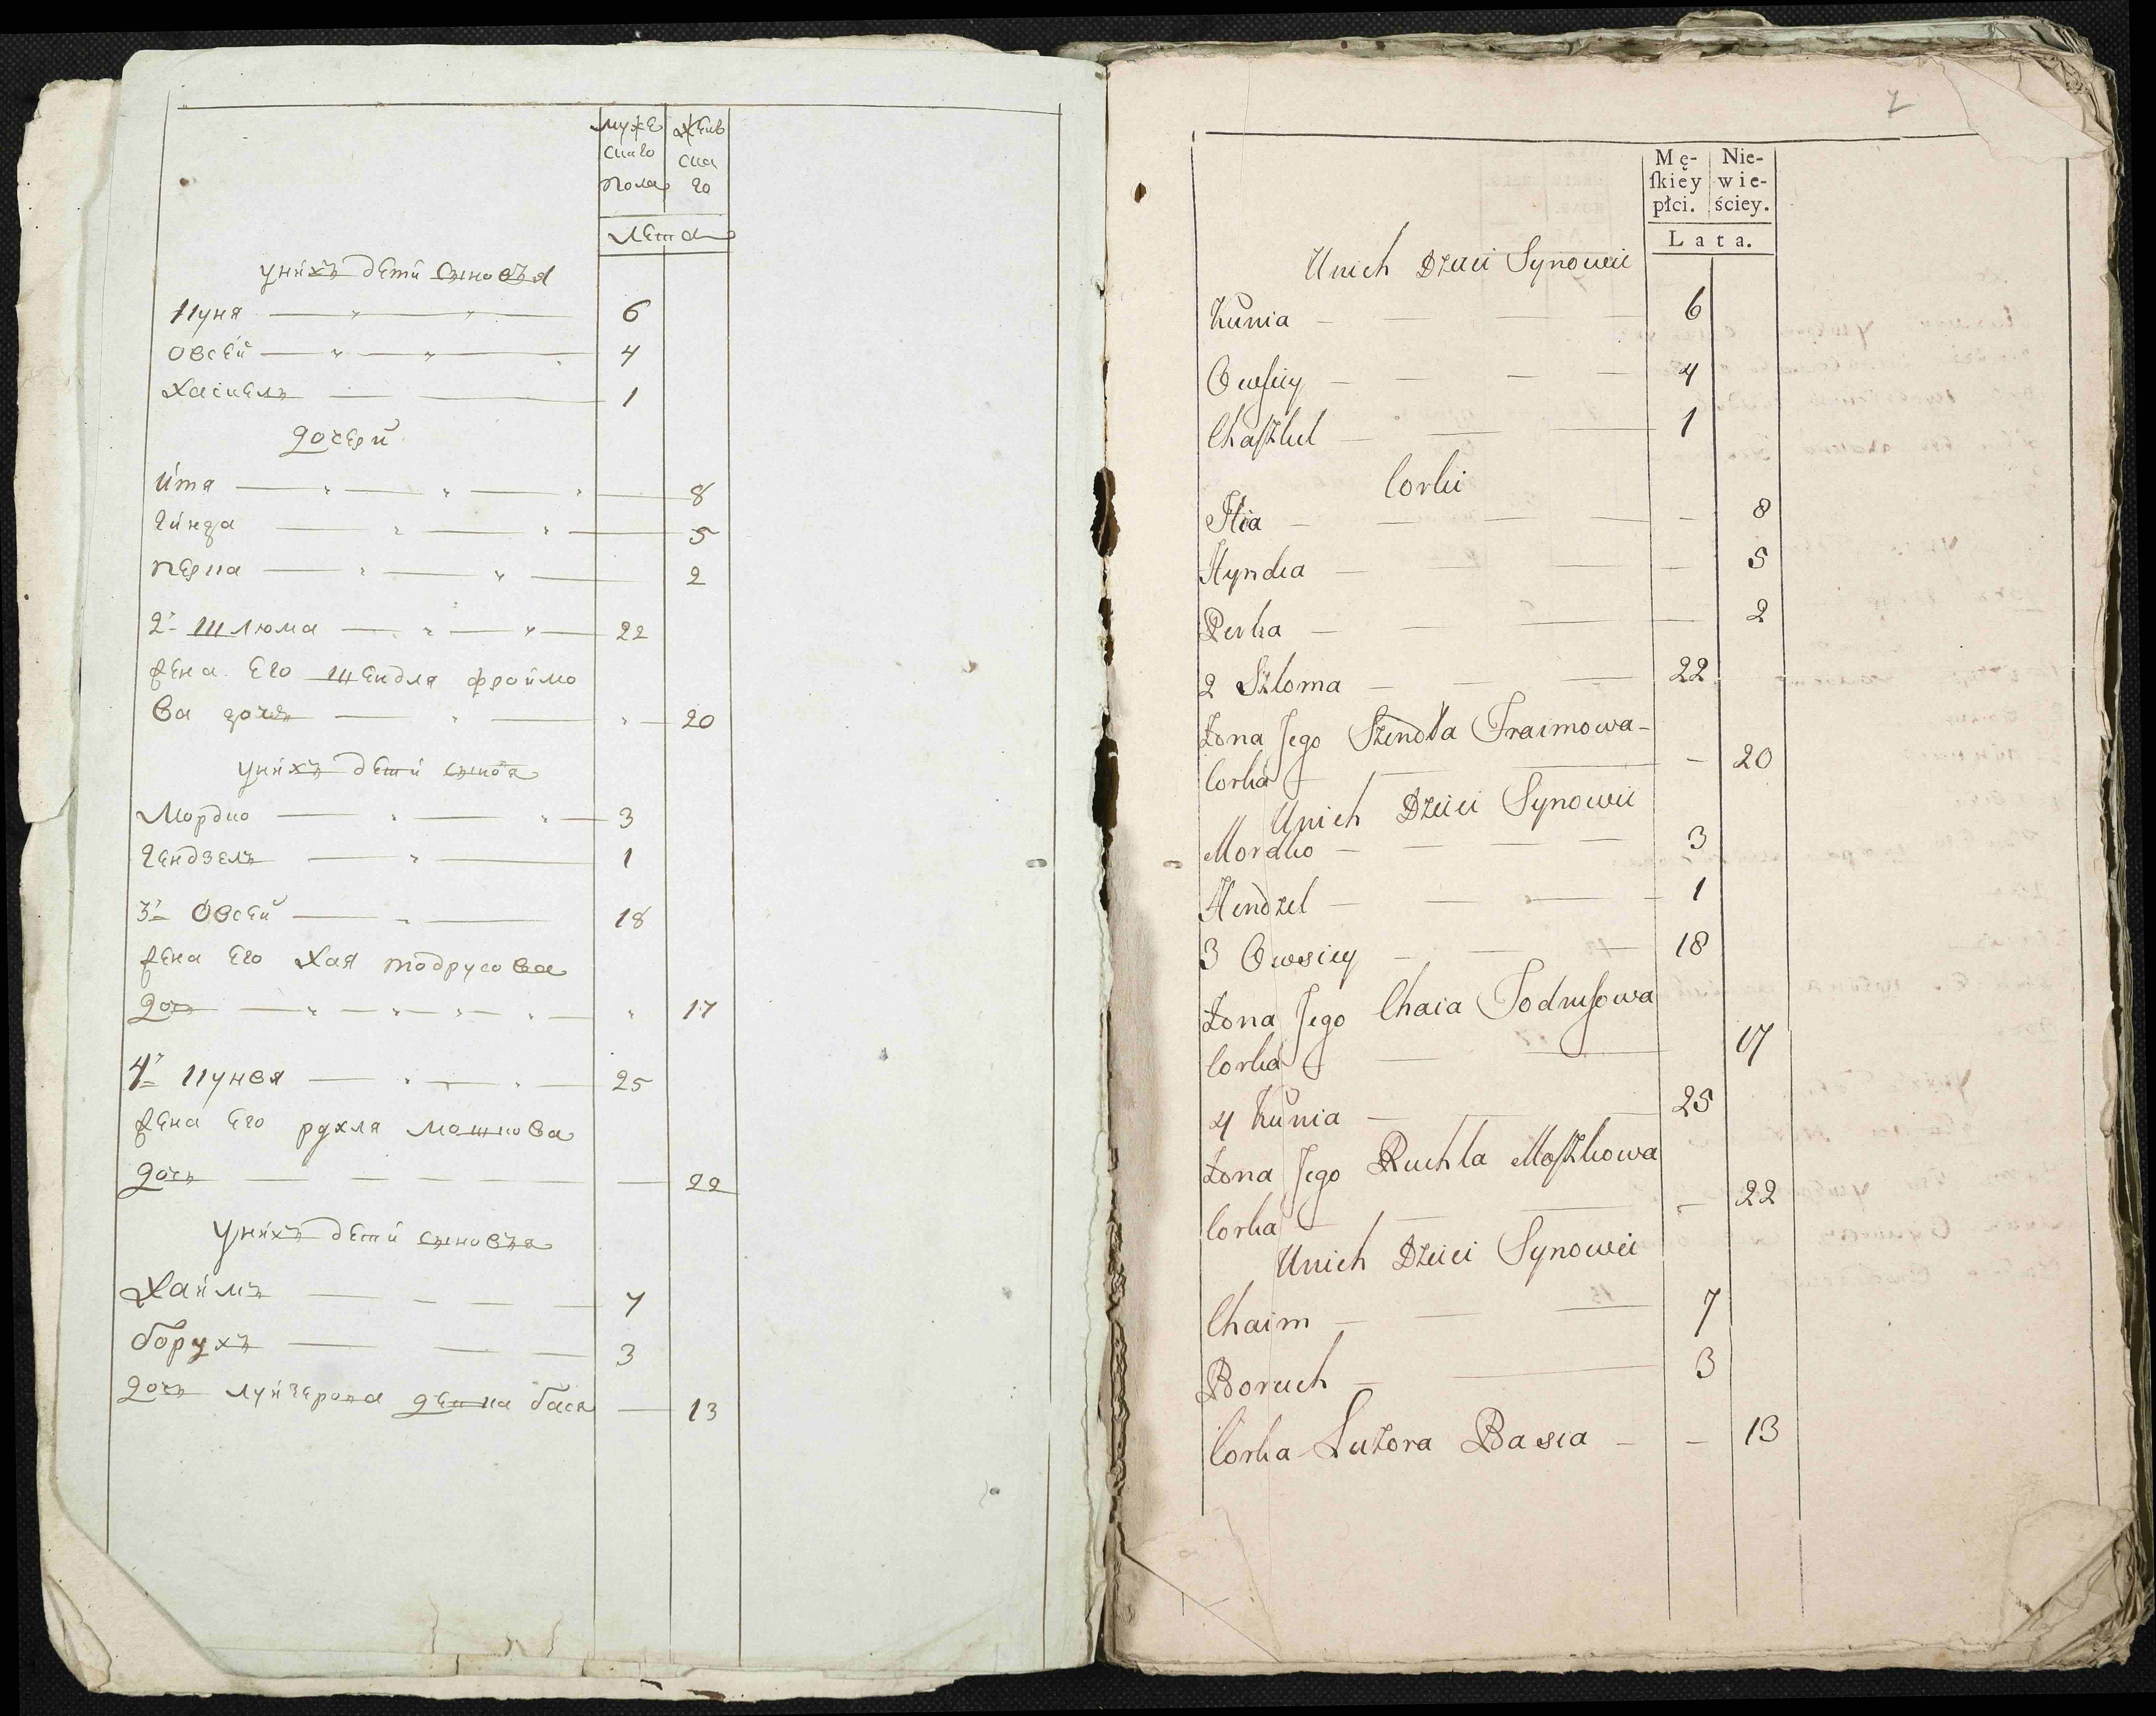 муже
скаго
пола
женс
ска
го
лета
унихъ дети сыновья
Куня 6
Овсей 4
Хаскель 1
дочери
Ита 8
Гинда 5
Перка 2
2й Шлюма 22
жена Его Шендля Фроимо
ва дочь 20
унихъ дети сыновя
Мордко 3
Гендзель 1
3й Овсей 18
жена Его Хая Тодрусова
дочь 17
4й Кунея 25
жена Его рухля Мошкова
дочь 22
Унихъ дети сыновья
Хаимъ 7
борухъ 3
дочь бася 13
7
Mę-
ſkiey
płci.
Nie-
wie-
ściey.
Lata.
Unich Dzieci Synowie
Kunia 6
Owſiey 4
Chaſzkel 1
Corki
Itia 8
Hyndia 5
Perka 2
2 Szloma 22
Żona Jego Szendla Fraimowa-
Corka 20
Unich Dzieci Synowie
Mordko 3
Hendzel 1
3 Owsiey 18
Żona Jego Chaia Todruſowa
Corka 17
4 Kunia 25
Żona Jego Ruchla Moſzkowa
Corka 22
Unich Dzieci Synowie
Chaim 7
Boruch 3
Corka Luzora Basia 13